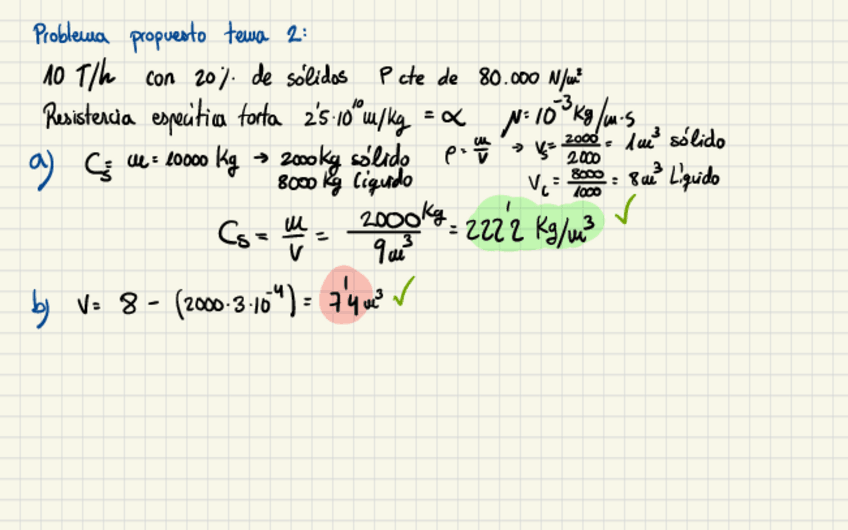 Problema propuesto tema 2:
10 T/h con 20% de sólidos P cte de 80.000 N/m²
Resistencia específica torta 2'5·10¹⁰ m/kg = α μ = 10⁻³ Kg/m·s
a) Cs = m = 10000 Kg → 2000 kg sólido ρ = m/V → Vs = 2000/2000 = 1 m³ sólido
8000 kg líquido VL = 8000/1000 = 8 m³ Líquido
Cs = m/V = 2000 Kg/9 m³ = 222'2 Kg/m³ ✓
b) V = 8 - (2000·3·10⁻⁴) = 7'4 m³ ✓